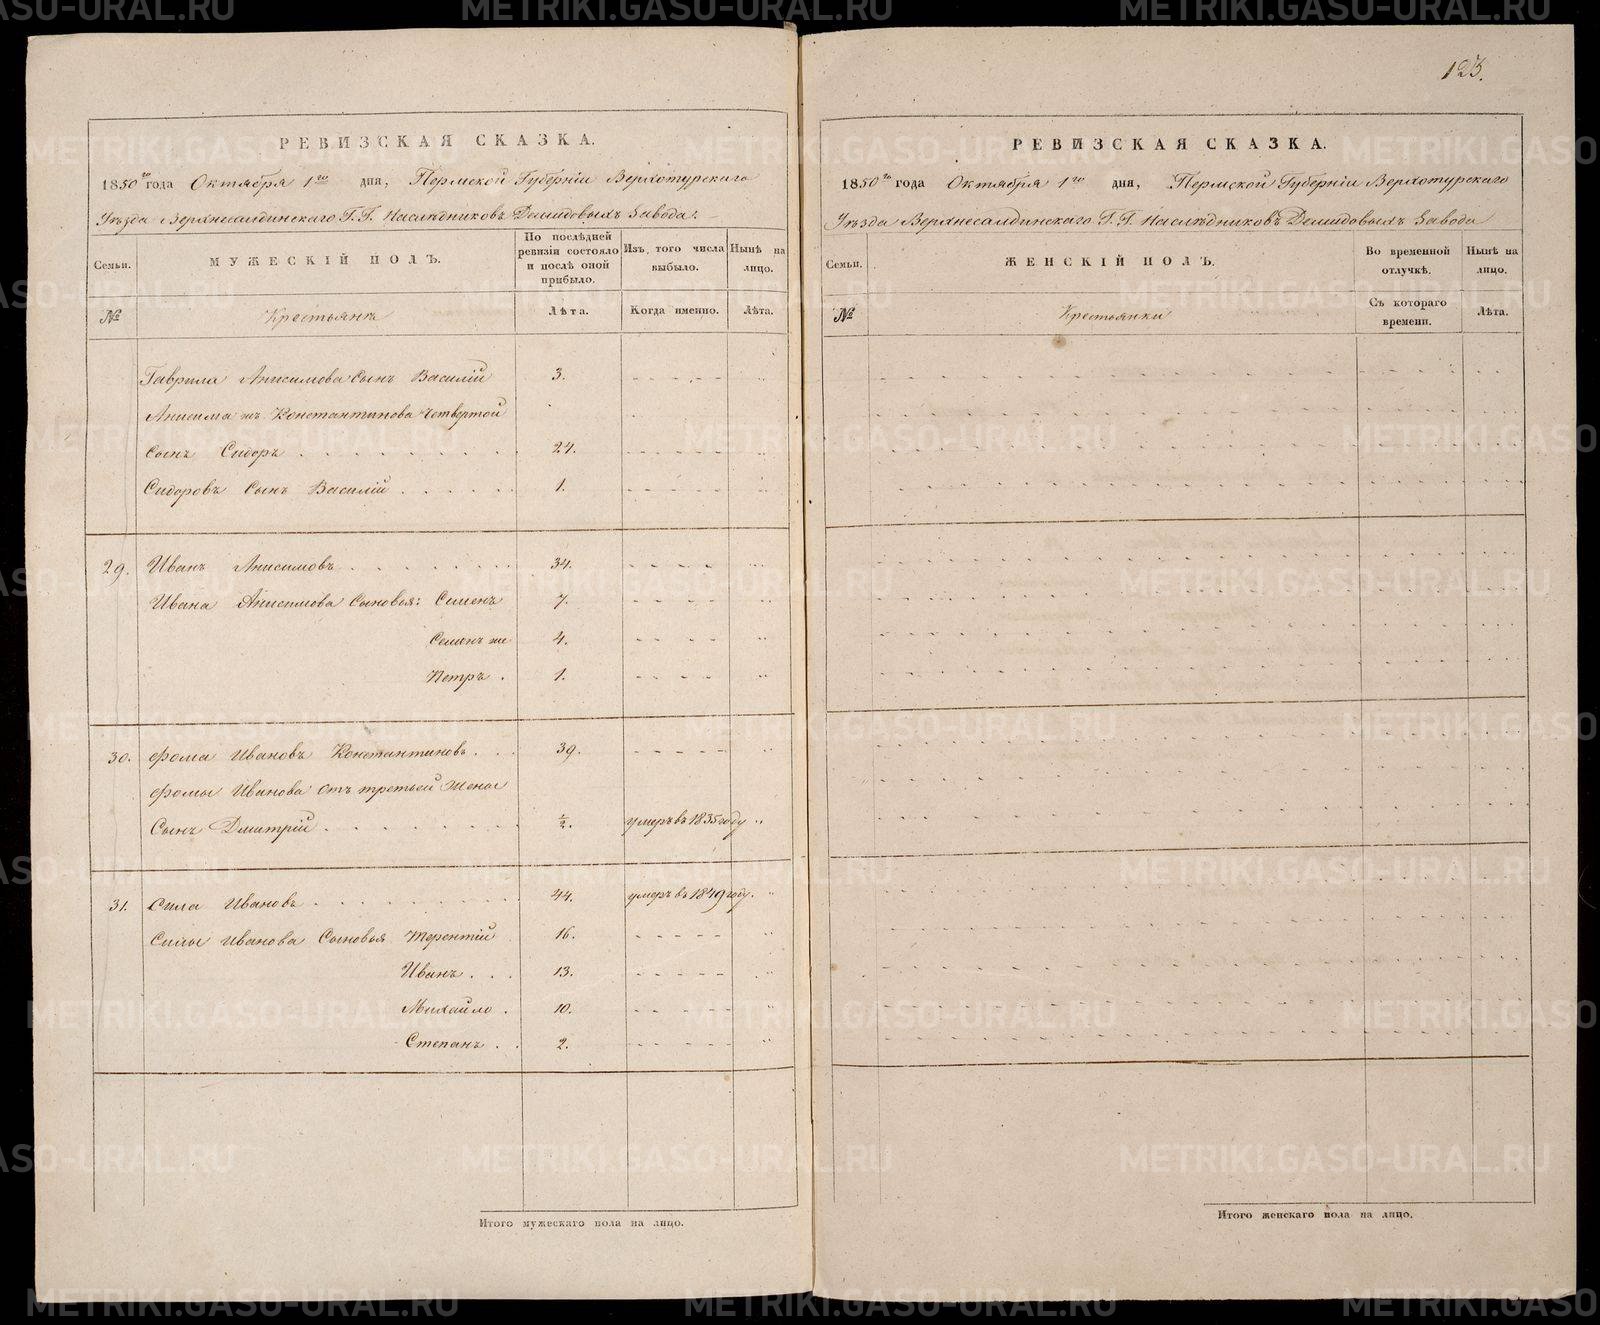 123.
РЕВИЗСКАЯ СКАЗКА.
1850го года Октября 1го дня, Пермской Губерніи Верхотурскаго
Уѣзда Верхнесалдинскаго Г.Г. Наслѣдниковъ Демидовыхъ Завода.
Семьи.
МУЖЕСКІЙ ПОЛЪ.
По послѣдней ревизіи состояло и послѣ оной прибыло.
Изъ того числа выбыло.
Нынѣ на лицо.
№
Крестьянъ
Лѣта.
Когда именно.
Лѣта.
Гаврила Анисимова Сынъ Василій 3.
Анисима жъ Константинова четвертой
Сынъ Сидоръ 24.
Сидоровъ Сынъ Василій 1.
29. Иванъ Анисимовъ 34.
Ивана Анисимова Сыновья: Семенъ 7.
Семенъ же 4.
Петръ 1.
30. Фома Ивановъ Константиновъ 39.
Фомы Иванова отъ третьей жены
Сынъ Дмитрій ½. умеръ въ 1835 году
31. Сила Ивановъ 44. умеръ въ 1849 году.
Силы Иванова Сыновья Терентій 16.
Иванъ 13.
Михайло 10.
Степанъ 2.
Итого мужескаго пола на лицо.
РЕВИЗСКАЯ СКАЗКА.
1850го года Октября 1го дня, Пермской Губерніи Верхотурскаго
Уѣзда Верхнесалдинскаго Г.Г. Наслѣдниковъ Демидовыхъ Завода
Семьи.
ЖЕНСКІЙ ПОЛЪ.
Во временной отлучкѣ.
Нынѣ на лицо.
№
Крестьянки
Съ котораго времени.
Лѣта.
Итого женскаго пола на лицо.
METRIKI.GASO-URAL.RU